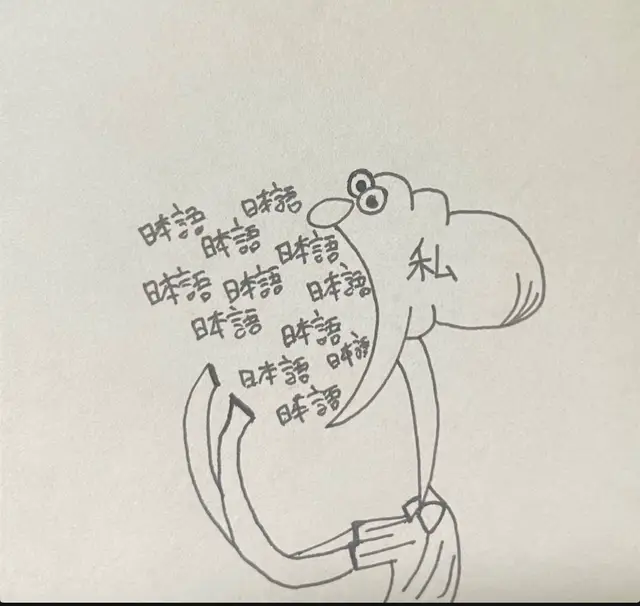 日本語 日本語
日本語 日本語
日本語 日本語 日本語 私
日本語 日本語
日本語 日本語
日本語